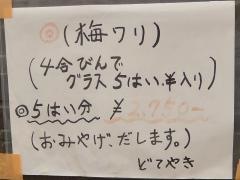 ◎(梅ワリ)
(4合びんで
グラス5はい半入り)
◎5はい分 ¥2,750-
(おみやげ、だします。)
どてやき